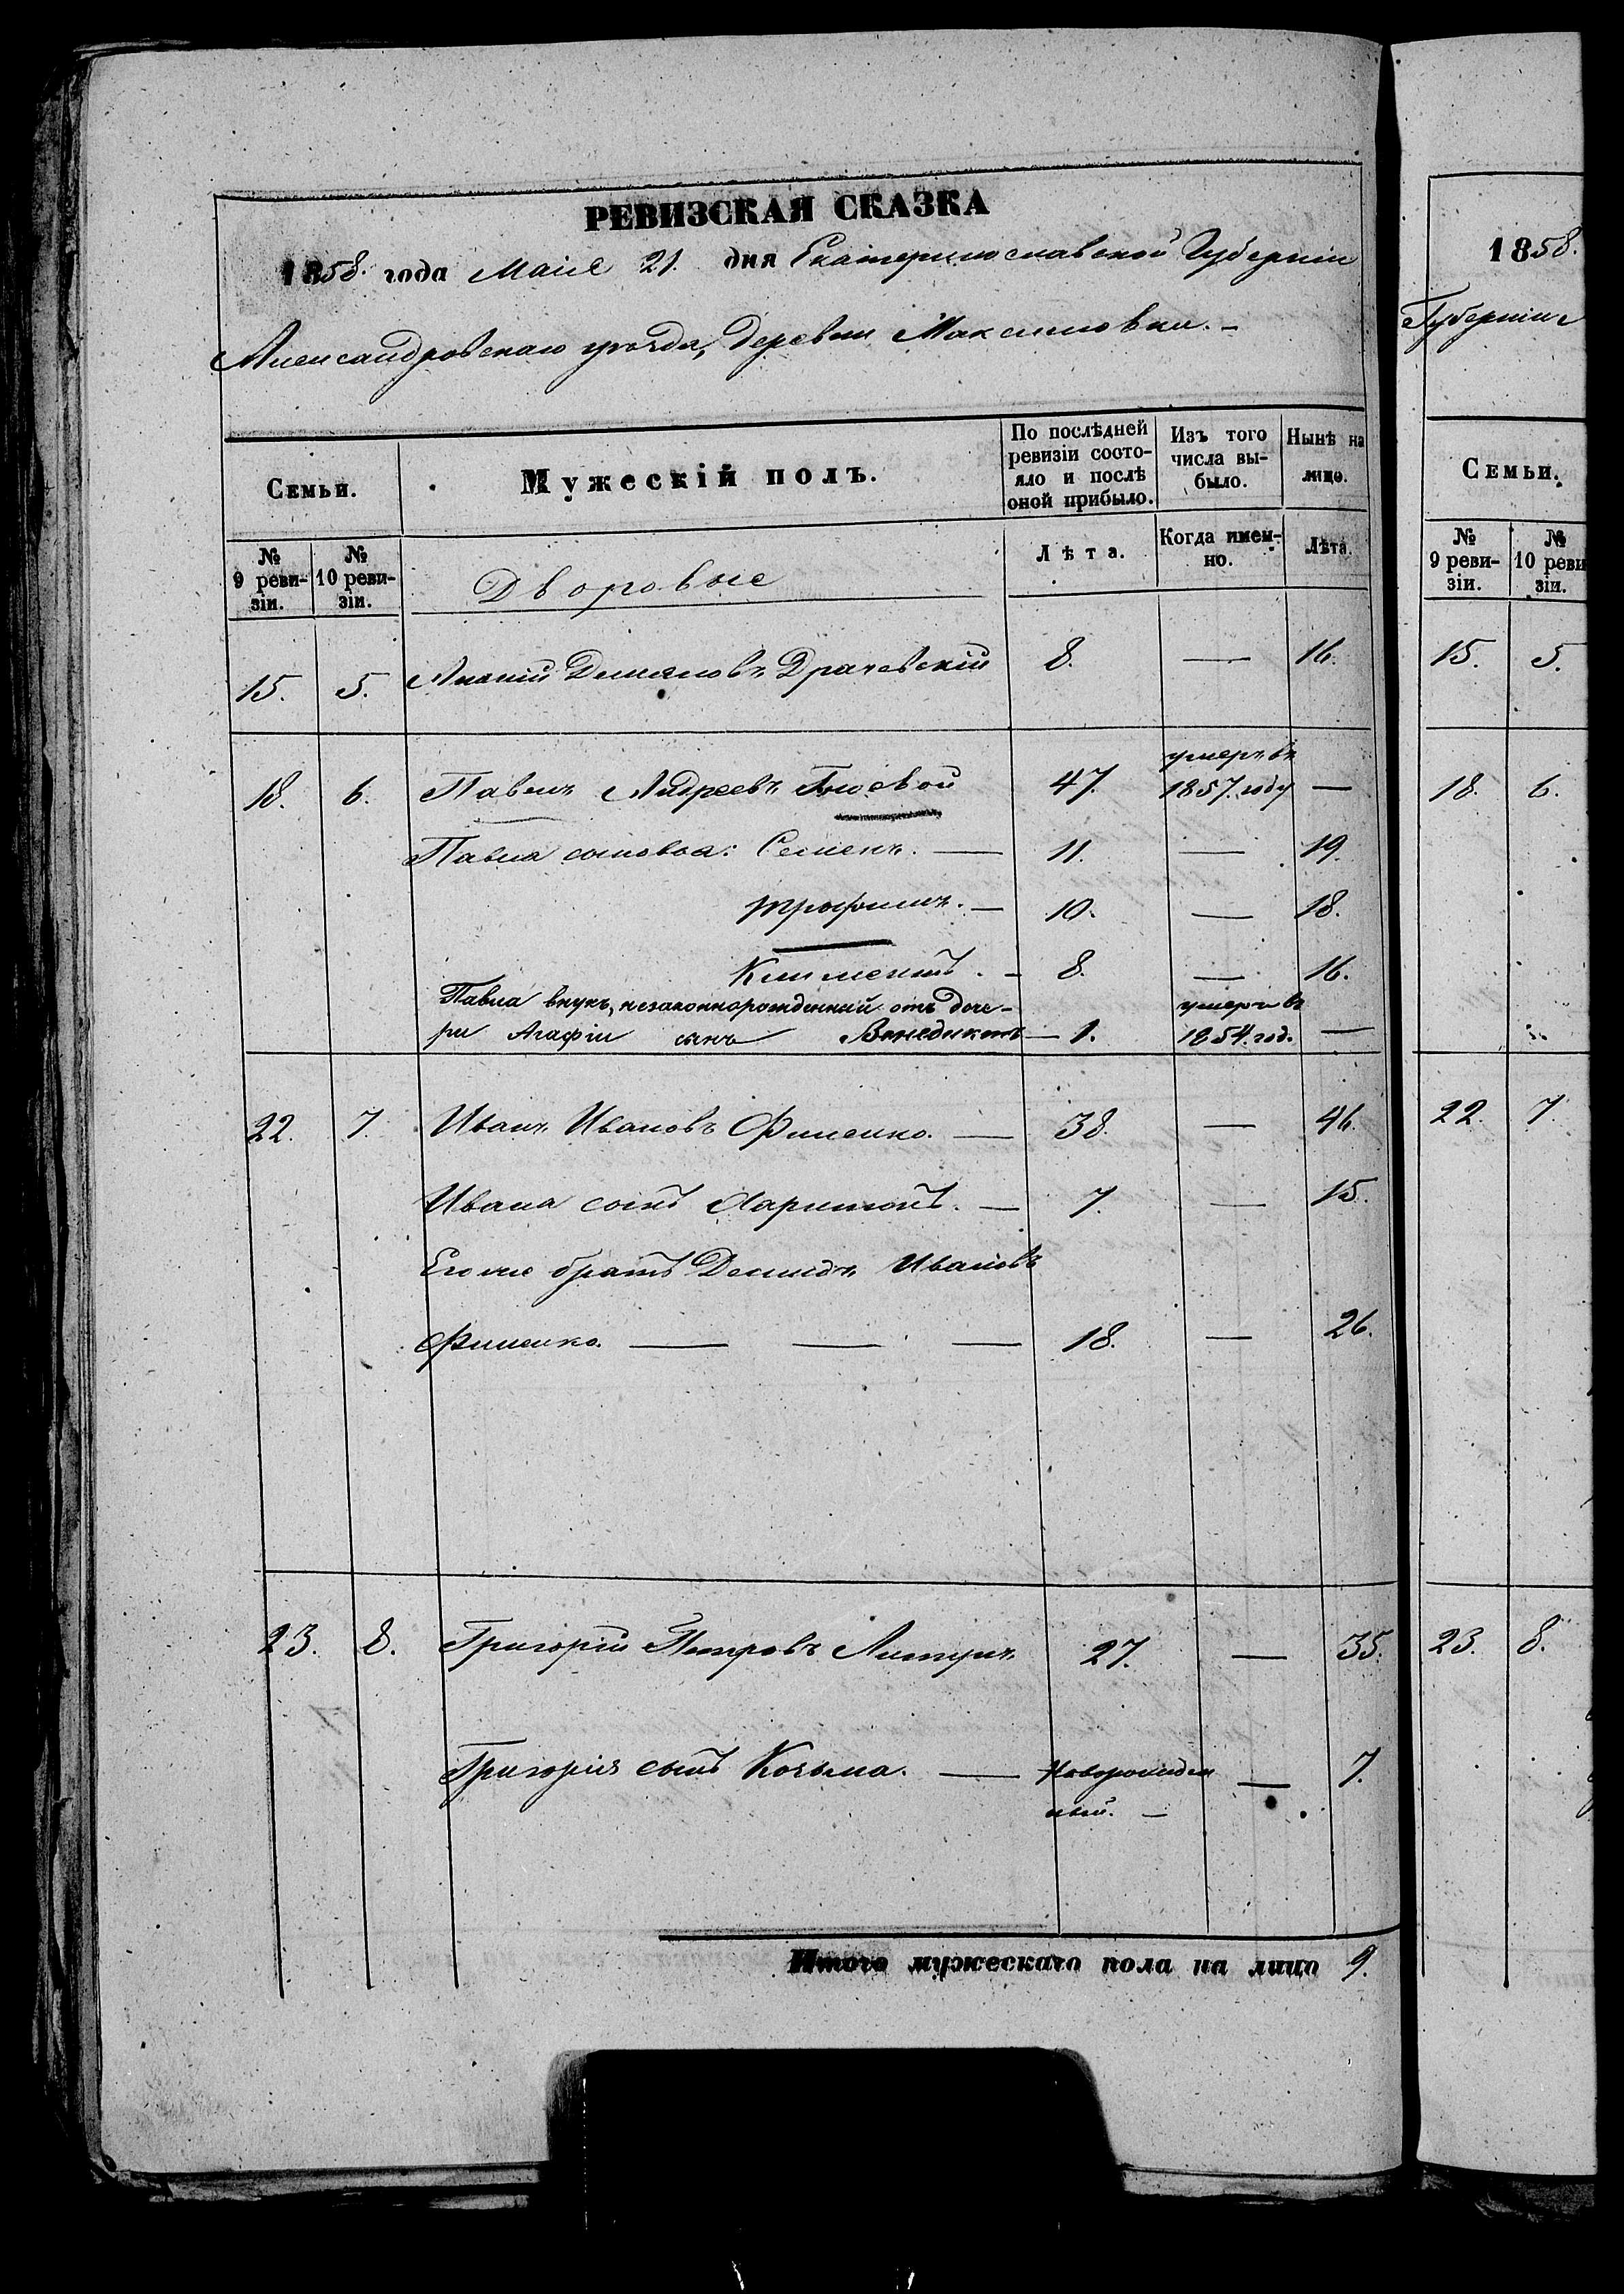 РЕВИЗСКАЯ СКАЗКА
1858. года Маія 21. дня Екатеринославской Губерніи
Александровскаго уѣзда, Деревни Максимовки. –
Семьи.
Мужескій полъ.
По послѣдней ревизіи состояло и послѣ оной прибыло.
Изъ того числа выбыло.
Нынѣ на лицо.
№ 9 ревизіи.
№ 10 ревизіи.
Дворовые
Лѣта.
Когда именно.
Лѣта.
15. 5. Ананій Демяновъ Драчевскій 8. — 16.
18. 6. Павелъ Андреевъ 47. умеръ въ 1857. году —
Павла сыновья: Семенъ. — 11. — 19.
Трофимъ. — 10. — 18.
Климентъ. – 8. — 16.
Павла внукъ, незаконнорожденный отъ доче-
ри Агафіи сынъ Венедиктъ — 1. умеръ въ 1854. год. —
22. 7. Иванъ Ивановъ Фименко. — 38. — 46.
Ивана сынъ Харитонъ. — 7. — 15.
Его же братъ Демидъ Ивановъ
Фименко. — — — 18. — 26.
23. 8. Григорій Петровъ 27. — 35.
Григорія сынъ Козьма. — Новорожден
ный. – — 7.
Итого мужескаго пола на лицо 9.
1858.
Губерніи
Семьи.
№ 9 ревизіи.
№ 10 реви
зіи.
15. 5.
18. 6.
22. 7.
23. 8.